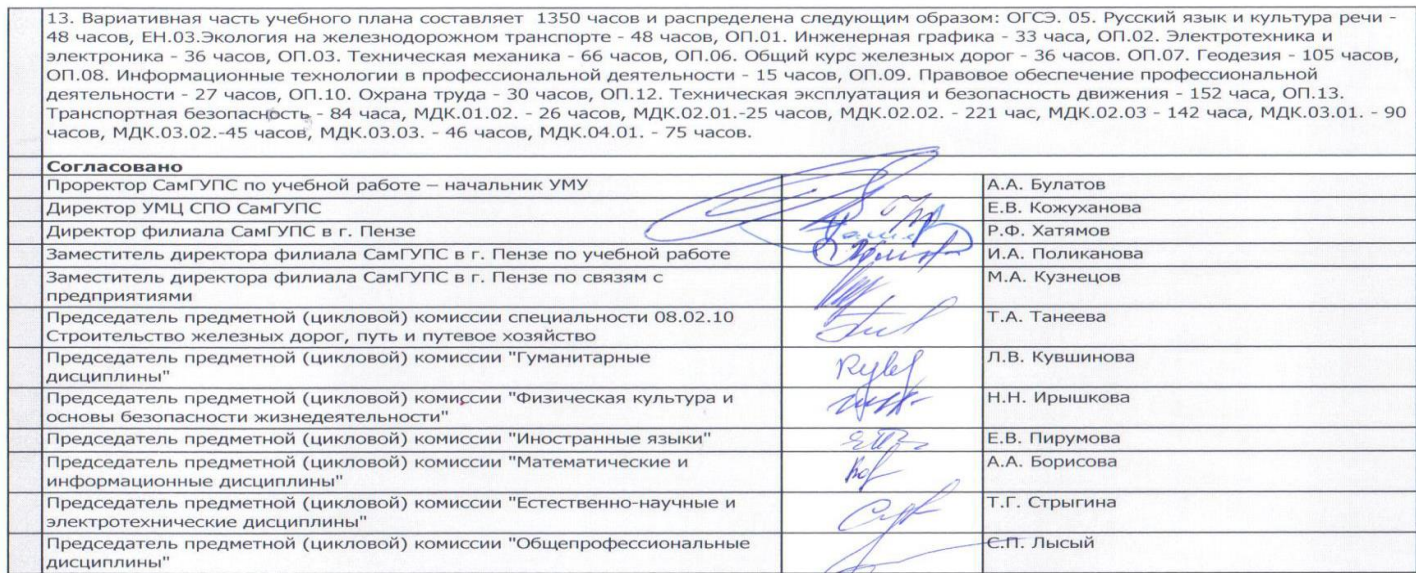 13. Вариативная часть учебного плана составляет 1350 часов и распределена следующим образом: ОГСЭ. 05. Русский язык и культура речи -
48 часов, ЕН.03.Экология на железнодорожном транспорте - 48 часов, ОП.01. Инженерная графика - 33 часа, ОП.02. Электротехника и
электроника - 36 часов, ОП.03. Техническая механика - 66 часов, ОП.06. Общий курс железных дорог - 36 часов. ОП.07. Геодезия - 105 часов,
ОП.08. Информационные технологии в профессиональной деятельности - 15 часов, ОП.09. Правовое обеспечение профессиональной
деятельности - 27 часов, ОП.10. Охрана труда - 30 часов, ОП.12. Техническая эксплуатация и безопасность движения - 152 часа, ОП.13.
Транспортная безопасность - 84 часа, МДК.01.02. - 26 часов, МДК.02.01.-25 часов, МДК.02.02. - 221 час, МДК.02.03 - 142 часа, МДК.03.01. - 90
часов, МДК.03.02.-45 часов, МДК.03.03. - 46 часов, МДК.04.01. - 75 часов.
Согласовано
Проректор СамГУПС по учебной работе – начальник УМУ А.А. Булатов
Директор УМЦ СПО СамГУПС Е.В. Кожуханова
Директор филиала СамГУПС в г. Пензе Р.Ф. Хатямов
Заместитель директора филиала СамГУПС в г. Пензе по учебной работе И.А. Поликанова
Заместитель директора филиала СамГУПС в г. Пензе по связям с М.А. Кузнецов
предприятиями
Председатель предметной (цикловой) комиссии специальности 08.02.10 Т.А. Танеева
Строительство железных дорог, путь и путевое хозяйство
Председатель предметной (цикловой) комиссии "Гуманитарные Л.В. Кувшинова
дисциплины"
Председатель предметной (цикловой) комиссии "Физическая культура и Н.Н. Ирышкова
основы безопасности жизнедеятельности"
Председатель предметной (цикловой) комиссии "Иностранные языки" Е.В. Пирумова
Председатель предметной (цикловой) комиссии "Математические и А.А. Борисова
информационные дисциплины"
Председатель предметной (цикловой) комиссии "Естественно-научные и Т.Г. Стрыгина
электротехнические дисциплины"
Председатель предметной (цикловой) комиссии "Общепрофессиональные С.П. Лысый
дисциплины"